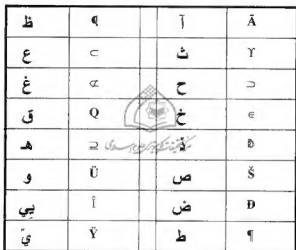 ظ ¶ آ Ā
ع ⊂ ث ϒ
غ ⊄ ح ⊃
ق Q خ ∈
هـ ⊇ ذ
و Ü ص Š
يي Î ض Ð
يّ Ÿ ط ¶